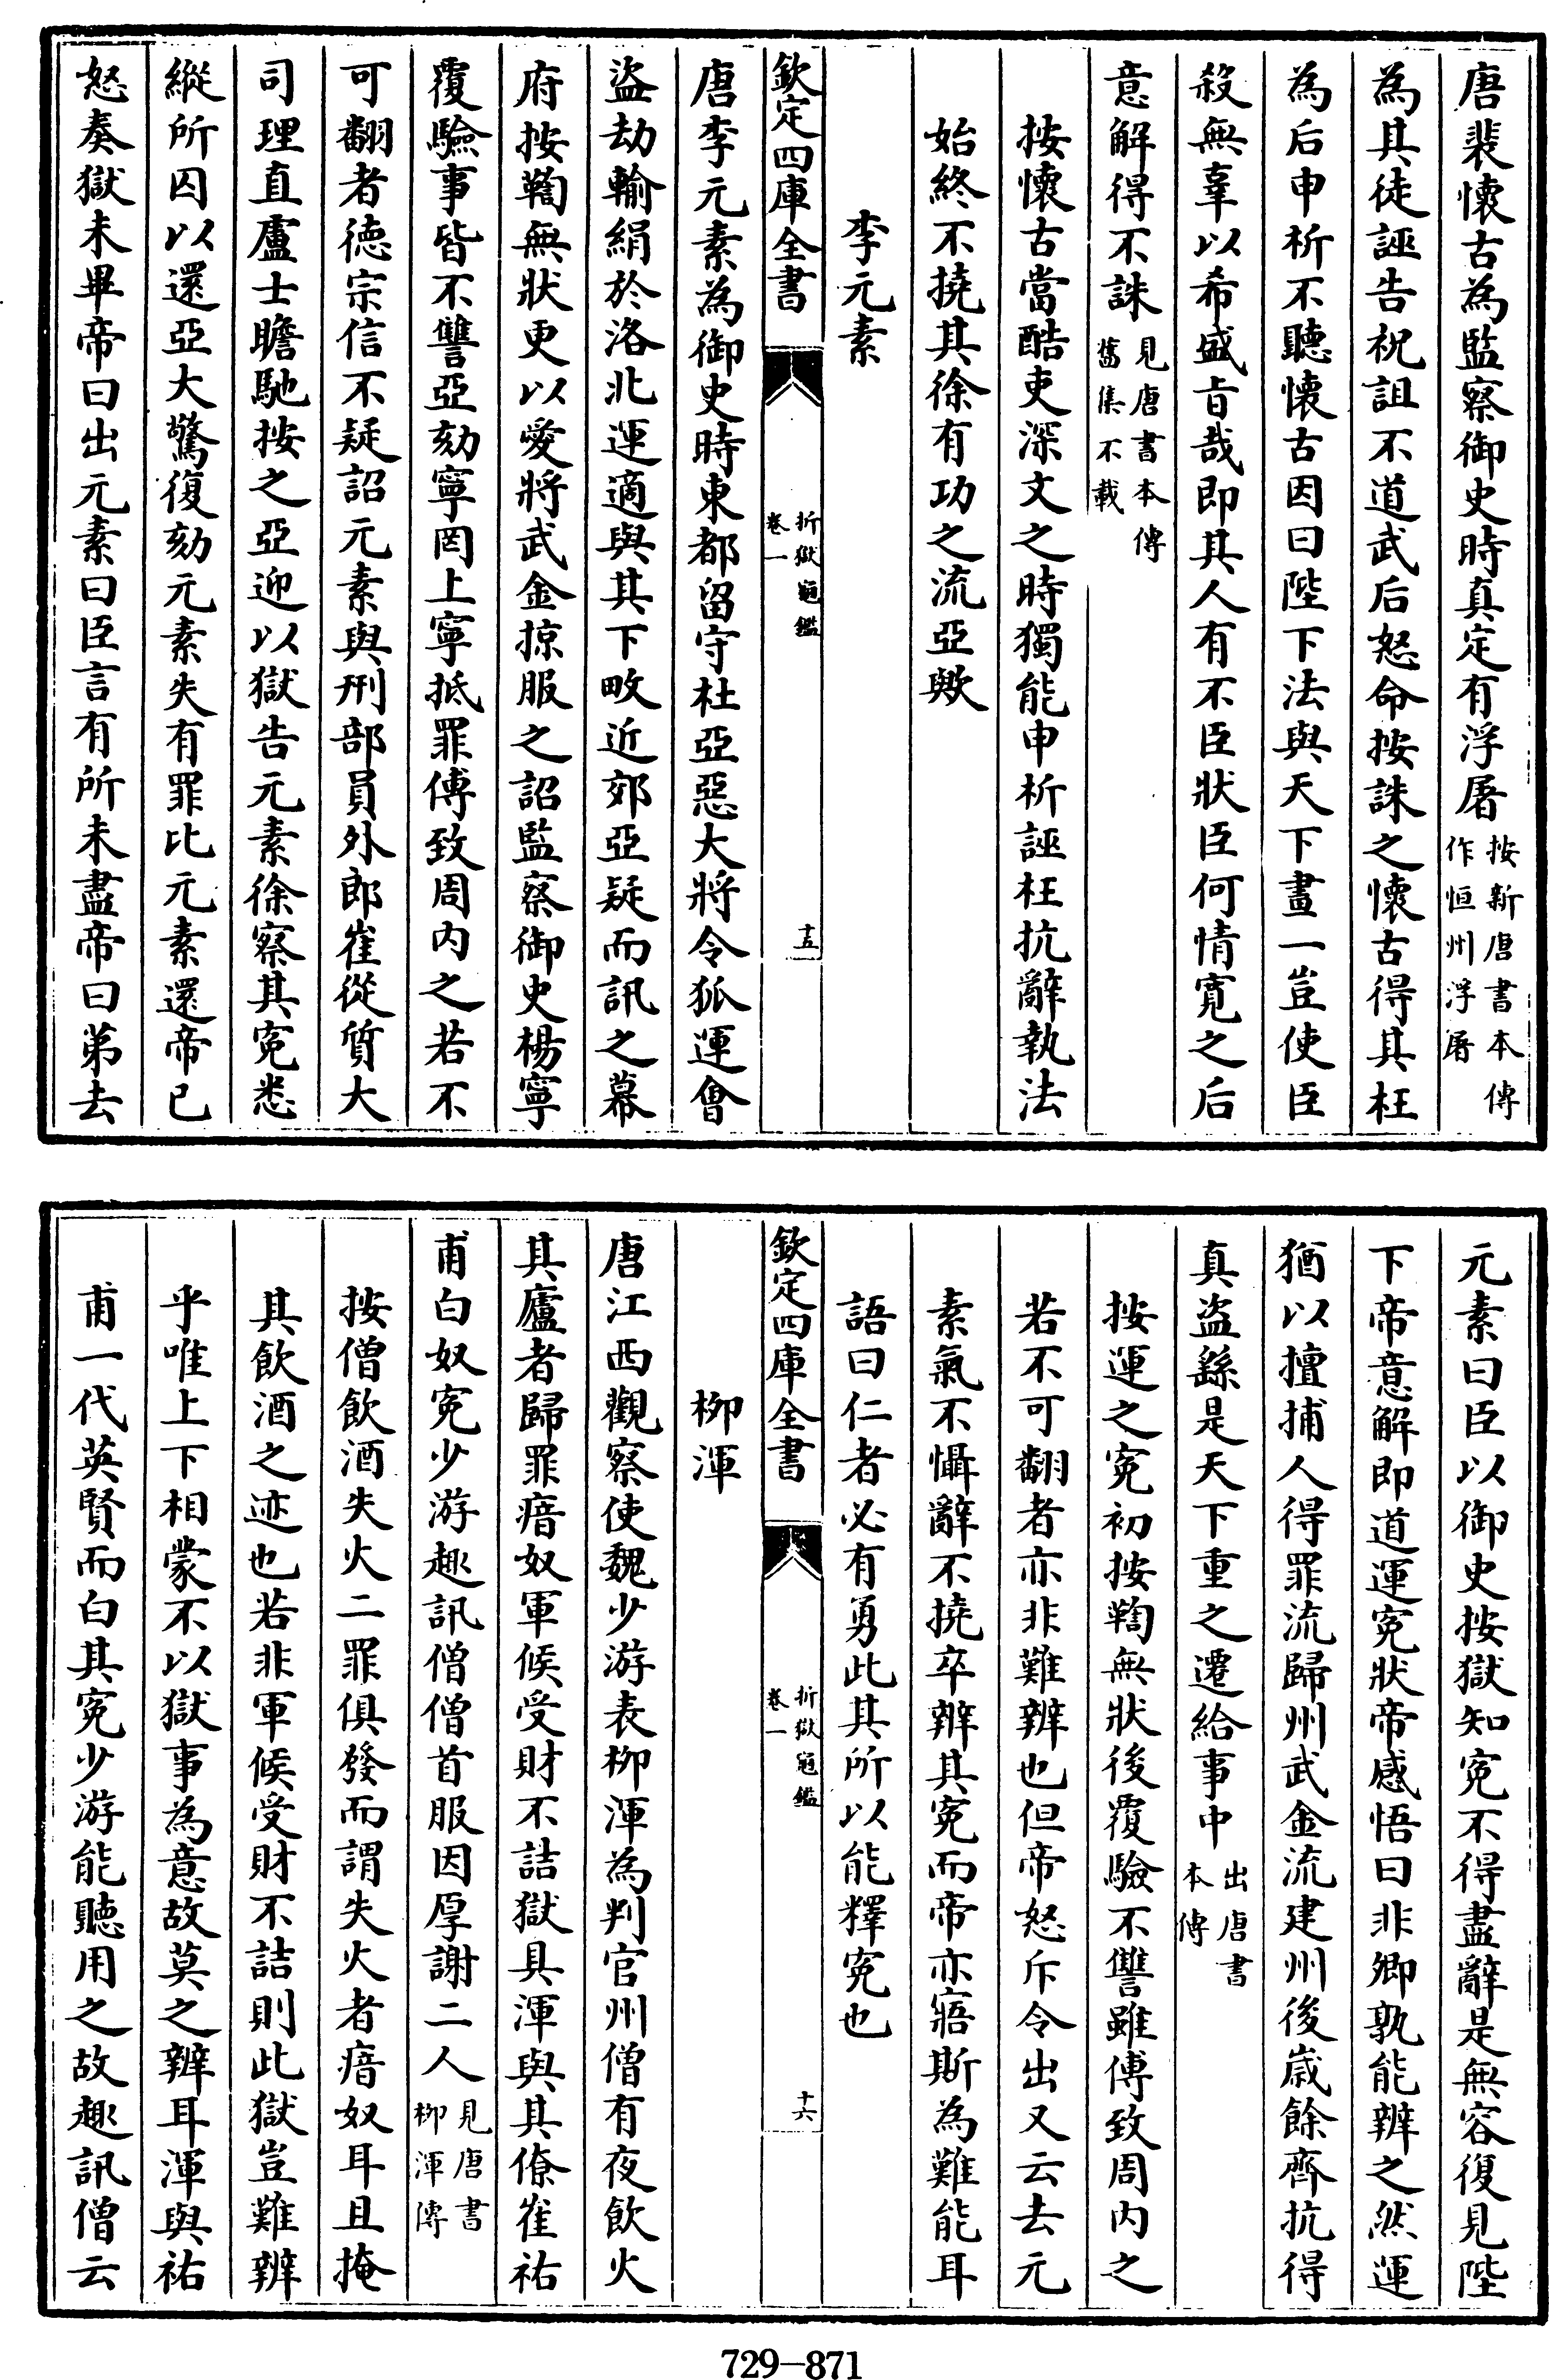 唐裴懷古為監察御史時真定有浮屠按新唐書本傳作恒州浮屠
為其徒誣告祝詛不道武后怒命按誅之懷古得其枉
為后申析不聽懷古因曰陛下法與天下畫一豈使臣
殺無辜以希盛旨哉即其人有不臣狀臣何情寬之后
意解得不誅見唐書本傳舊集不載
按懷古當酷吏深文之時獨能申析誣枉抗辭執法
始終不撓其徐有功之流亞歟
李元素
欽定四庫全書 折獄龜鑑 卷一 十五
唐李元素為御史時東都留守杜亞惡大將令狐運會
盜劫輸絹於洛北運適與其下畋近郊亞疑而訊之幕
府按鞫無狀更以愛將武金掠服之詔監察御史楊寧
覆驗事皆不讐亞劾寧罔上寧抵罪傅致周內之若不
可翻者德宗信不疑詔元素與刑部員外郎崔從質大
司理直盧士瞻馳按之亞迎以獄告元素徐察其寃悉
縱所囚以還亞大驚復劾元素失有罪比元素還帝已
怒奏獄未畢帝曰出元素曰臣言有所未盡帝曰第去
元素曰臣以御史按獄知寃不得盡辭是無容復見陛
下帝意解即道運寃狀帝感悟曰非卿孰能辨之然運
猶以擅捕人得罪流歸州武金流建州後歲餘齊抗得
真盜繇是天下重之遷給事中出唐書本傳
按運之寃初按鞫無狀後覆驗不讐雖傅致周內之
若不可翻者亦非難辨也但帝怒斥令出又云去元
素氣不懾辭不撓卒辨其寃而帝亦寤斯為難能耳
語曰仁者必有勇此其所以能釋寃也
欽定四庫全書 折獄龜鑑 卷一 十六
柳渾
唐江西觀察使魏少游表柳渾為判官州僧有夜飲火
其廬者歸罪瘖奴軍候受財不詰獄具渾與其僚崔祐
甫白奴寃少游趣訊僧僧首服因厚謝二人見唐書柳渾傳
按僧飲酒失火二罪俱發而謂失火者瘖奴耳且掩
其飲酒之迹也若非軍候受財不詰則此獄豈難辨
乎唯上下相蒙不以獄事為意故莫之辨耳渾與祐
甫一代英賢而白其寃少游能聽用之故趣訊僧云
729-871